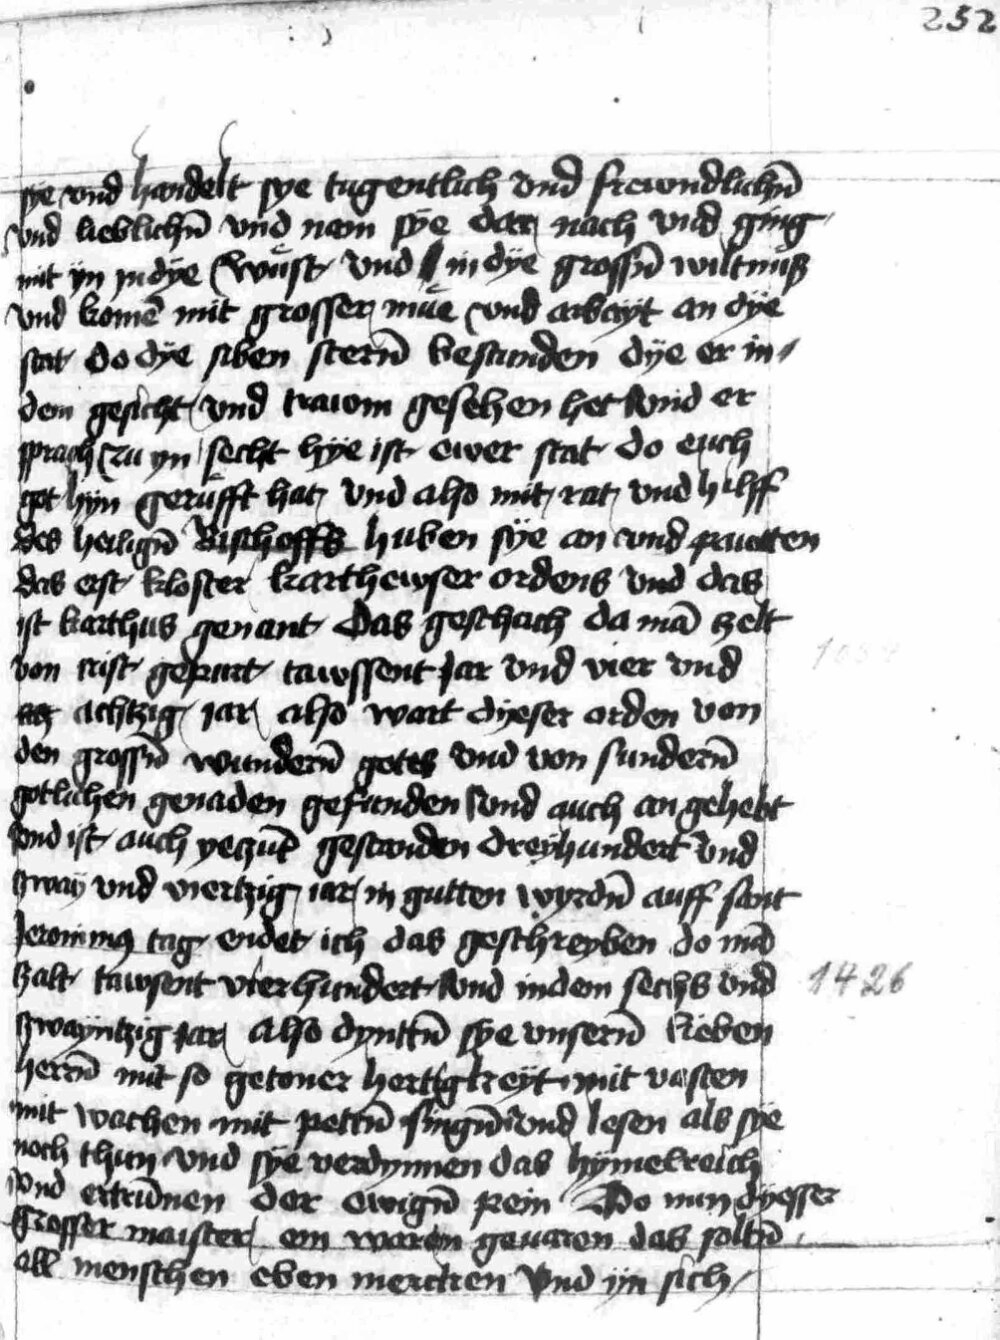 252
sye vnd handelt sye tugentlich vnd frewndlichn̄
vnd lieblichn̄ vnd nam sye dar nach vnd ging
mit yn in dye wuͤst vnd in dye grossn̄ wiltnuß
vnd komē mit grosser muͤe vnd arbeyt an dye
stat do dye siben sternn̄ bestunden dye er in
dem gesicht vnd trawm gesehen het vnd er
sprach zu yn secht hye ist ewer stat do euch
got hyn geruͤfft hat vnd also mit rat vnd hilff
des heilign̄ Bischoffs huben sye an vnd pawtten
das erst kloster karthewser ordens vnd das
ist karthus genant Das geschach da mā zelt
von crist gepurt tawssent jar vnd vier vnd
achtzig jar also wart dyeser orden von
den grossn̄ wundernn̄ gotes vnd von sundernn̄
gotlichen genaden gefunden vnd auch an gehebt
vnd ist auch yeczūt gestanden dreyhundert vnd
zway vnd viertzig jar in gutten wyrdn̄ auff sant
Jeronimus tag endet ich das geschreyben do mā
zalt tawsent vierhundert vnd in dem sechs vnd
1426
zwayntzig jar also dynttn̄ sye vnsernn̄ lieben
herrn̄ mit so getoner hertigkeyt mit vasten
mit wachen mit pettn̄ singn̄ vnd lesen als sye
noch thun vnd sye verdynnen das hymelreich
vnd entrūnen der ewign̄ pein Do nun dyesser
grosser maister ein waren geuaren das soltn̄
all menschen eben mercken vnd yn sich